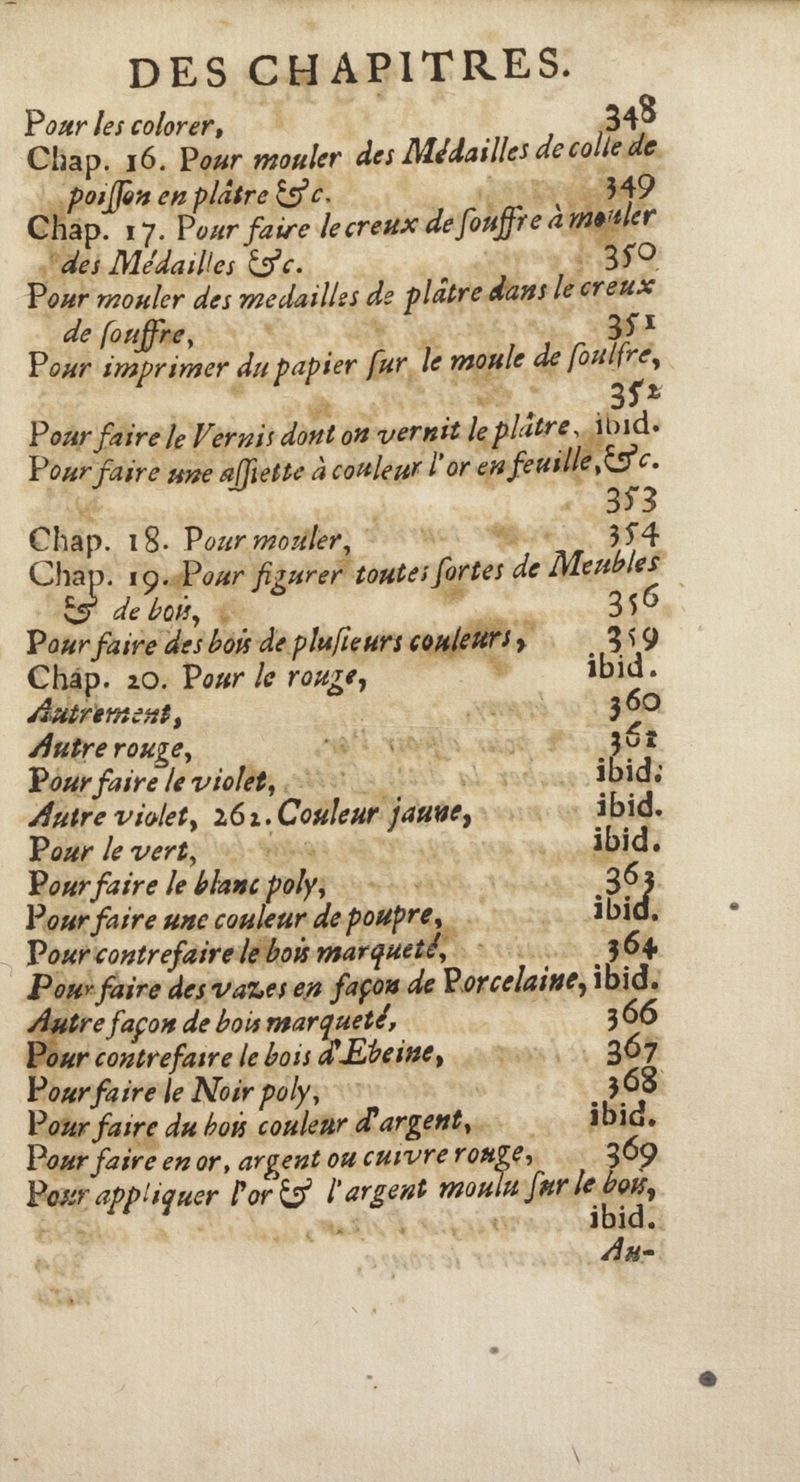 DES CHAPITRES.
Pour les colorer, 348
Chap. 16. Pour mouler des Médailles de colle de
poiſſon en plâtre &c. 349
Chap. 17. Pour faire le creux de ſouffre à mouler
des Médailles &c. 350
Pour mouler des medailles de plâtre dans le creux
de ſouffre, 351
Pour imprimer du papier ſur le moule de ſoulfre,
352
Pour faire le Vernis dont on vernit le plâtre, ibid.
Pour faire une aſſiette à couleur l'or en feuille, &c.
353
Chap. 18. Pour mouler, 354
Chap. 19. Pour figurer toutes ſortes de Meubles
& de bois, 356
Pour faire des bois de pluſieurs couleurs, 359
Chap. 20. Pour le rouge, ibid.
Autrement, 360
Autre rouge, 361
Pour faire le violet, ibid.
Autre violet, 262. Couleur jaune, ibid.
Pour le vert, ibid.
Pour faire le blanc poly, 363
Pour faire une couleur de poupre, ibid.
Pour contrefaire le bois marqueté, 364
Pour faire des vazes en façon de Porcelaine, ibid.
Autre façon de bois marqueté, 366
Pour contrefaire le bois d'Ebeine, 367
Pour faire le Noir poly, 368
Pour faire du bois couleur d'argent, ibid.
Pour faire en or, argent ou cuivre rouge, 369
Pour appliquer l'or & l'argent moulu ſur le bois,
ibid.
Au-